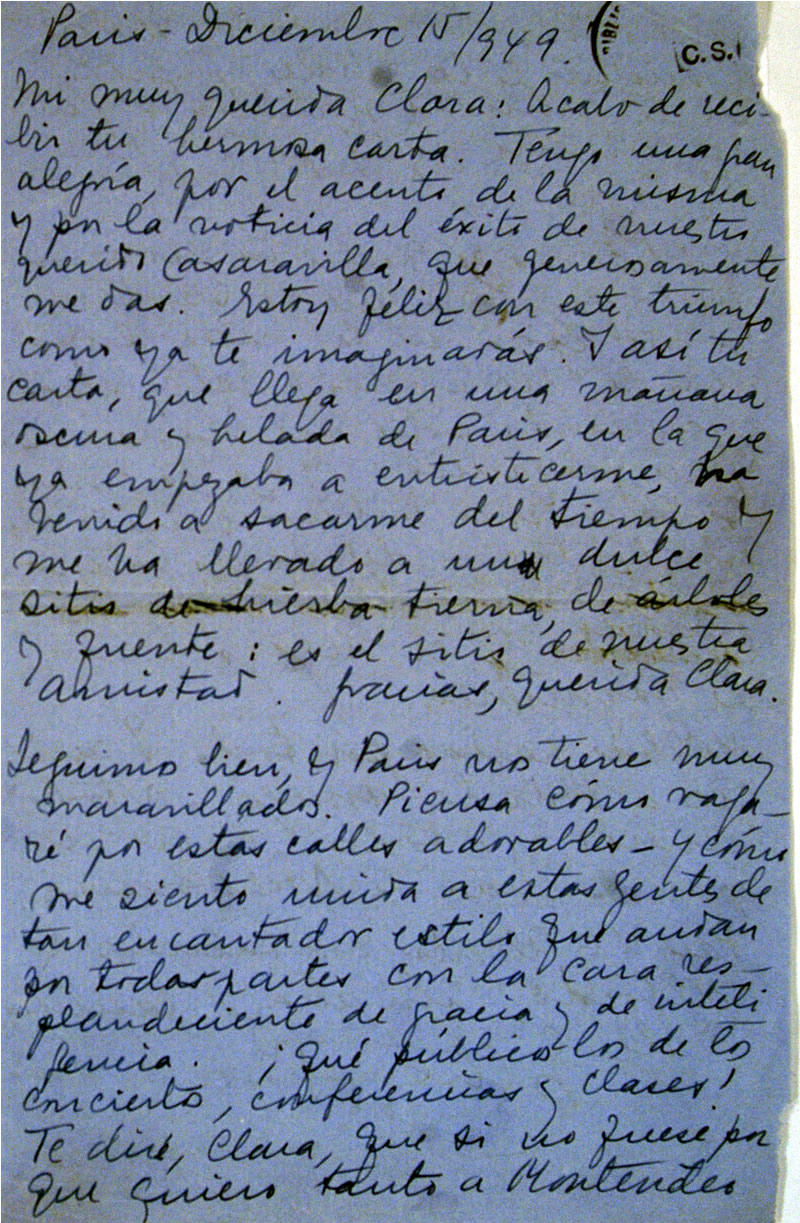 Paris - Diciembre 15/949.
BIBLIO
C.S.
Mi muy querida Clara: Acabo de reci-
bir tu hermosa carta. Tengo una gran
alegría, por el acento de la misma
y por la noticia del éxito de nuestro
querido Casaravilla, que generosamente
me das. Estoy féliz con este triunfo
como ya te imaginarás. Y así tu
carta, que llega en una mañana
oscura y helada de Paris, en la que
ya empezaba a entristecerme, ha
venido a sacarme del tiempo y
me ha llevado a un dulce
sitio de hierba tierna, de árboles
y fuente: es el sitio de nuestra
amistad. Gracias, querida Clara.
Seguimo bien, y Paris nos tiene muy
maravillados. Piensa cómo vaga-
ré por estas calles adorables - y cómo
me siento unida a estas gentes de
tan encantador estilo que andan
por todas partes con la cara res-
plandeciente de gracia y de inteli
gencia. ¡Qué público los de los
concierto, conferencias y clases!
Te diré, Clara, que si no fuese por
que quiero tanto a Montevideo